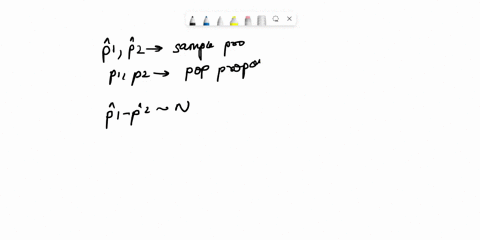 p̂1, p̂2 → sample pro
p1, p2 → pop propo
p̂1 - p̂2 ~ N